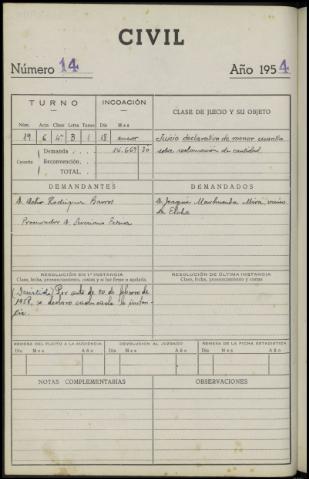 CIVIL
Número 14 Año 1954
TURNO INCOACIÓN CLASE DE JUICIO Y SU OBJETO
Núm. Acto Clase Letra Turno Día Mes
19 6 4º B 1 18 enero Juicio declarativo de menor cuantía
Cuantía Demanda 14.669 20 sobre reclamación de cantidad
Reconvención
TOTAL
DEMANDANTES DEMANDADOS
D. Rodríguez Barros D. Joaquín Mira, vecino
de Elche
Procurador D.
RESOLUCIÓN EN 1ª INSTANCIA RESOLUCIÓN DE ÚLTIMA INSTANCIA
Clase, fecha, pronunciamiento, costas y si fué firme o apelada Clase, fecha, pronunciamiento y costas
Por auto de 20 de febrero de
1958 se declaró caducada la instan-
cia.
REMESA DEL PLEITO A LA AUDIENCIA DEVOLUCIÓN AL JUZGADO REMESA DE LA FICHA ESTADÍSTICA
Día Mes Año Día Mes Año Día Mes Año
NOTAS COMPLEMENTARIAS OBSERVACIONES